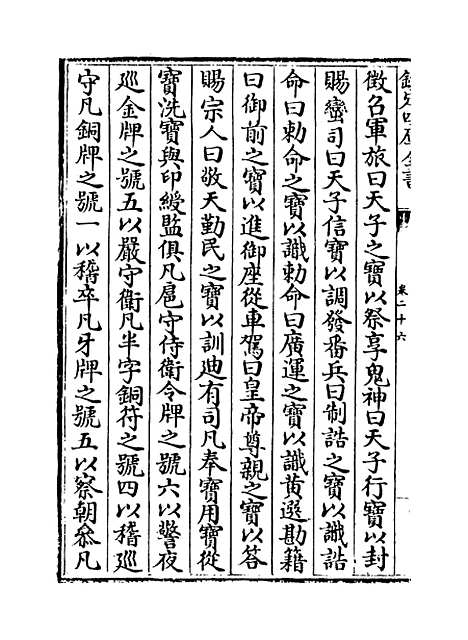 欽定四庫全書
卷二十六
徴名軍旅曰天子之寶以祭享鬼神曰天子行寶以封
賜蠻司曰天子信寶以調發番兵曰制誥之寶以識誥
命曰勅命之寶以識勅命曰廣運之寶以識黄選勘籍
曰御前之寶以進御座從車駕曰皇帝尊親之寶以答
賜宗人曰敬天勤民之寶以訓迪有司凡奉寶用寶從
寶洗寶與印綬監俱凡扈守侍衛令牌之號六以警夜
廵金牌之號五以嚴守衛凡半字銅符之號四以稽廵
守凡銅牌之號一以稽卒凡牙牌之號五以察朝叅凡